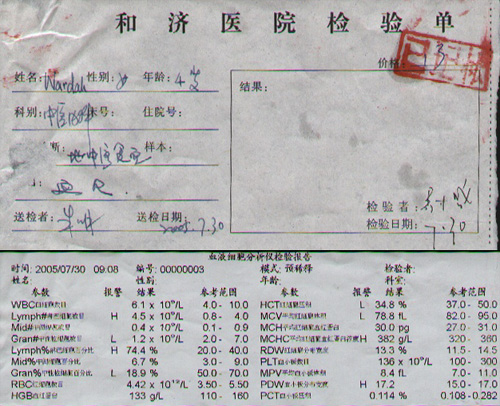 和济医院检验单
价格:
姓名: Wardah 性别: 女 年龄: 4岁
结果:
科别: 中医 床号: 住院号:
断: 地中海贫血 样本:
检验者:
送检者: 送检日期: 2005.7.30 检验日期: 7.30
血液细胞分析仪检验报告
时间: 2005/07/30 09:08 编号: 00000003 模式: 预稀释 检验者:
姓名: 性别: 年龄: 科室:
参数 报警 结果 参考范围 参数 报警 结果 参考范围
WBC白细胞数目 6.1 x 10⁹/L 4.0 - 10.0 HCT红细胞压积 L 34.8 % 37.0 - 50.0
Lymph#淋巴细胞数目 H 4.5 x 10⁹/L 0.8 - 4.0 MCV平均红细胞体积 L 78.8 fL 82.0 - 95.0
Mid#中间细胞数目 0.4 x 10⁹/L 0.1 - 0.9 MCH平均红细胞血红蛋白 30.0 pg 27.0 - 31.0
Gran#中性粒细胞数目 L 1.2 x 10⁹/L 2.0 - 7.0 MCHC平均红细胞血红蛋白浓度 H 382 g/L 320 - 360
Lymph%淋巴细胞百分比 H 74.4 % 20.0 - 40.0 RDW红细胞分布宽度 13.3 % 11.5 - 14.
Mid%中间细胞百分比 6.7 % 3.0 - 9.0 PLT血小板数目 136 x 10⁹/L 100 - 300
Gran%中性粒细胞百分比 L 18.9 % 50.0 - 70.0 MPV平均血小板体积 8.4 fL 7.0 - 11.0
RBC红细胞数目 4.42 x 10¹²/L 3.50 - 5.50 PDW血小板分布宽度 H 17.2 15.0 - 17.0
HGB血红蛋白 133 g/L 110 - 160 PCT血小板压积 0.114 % 0.108 - 0.282